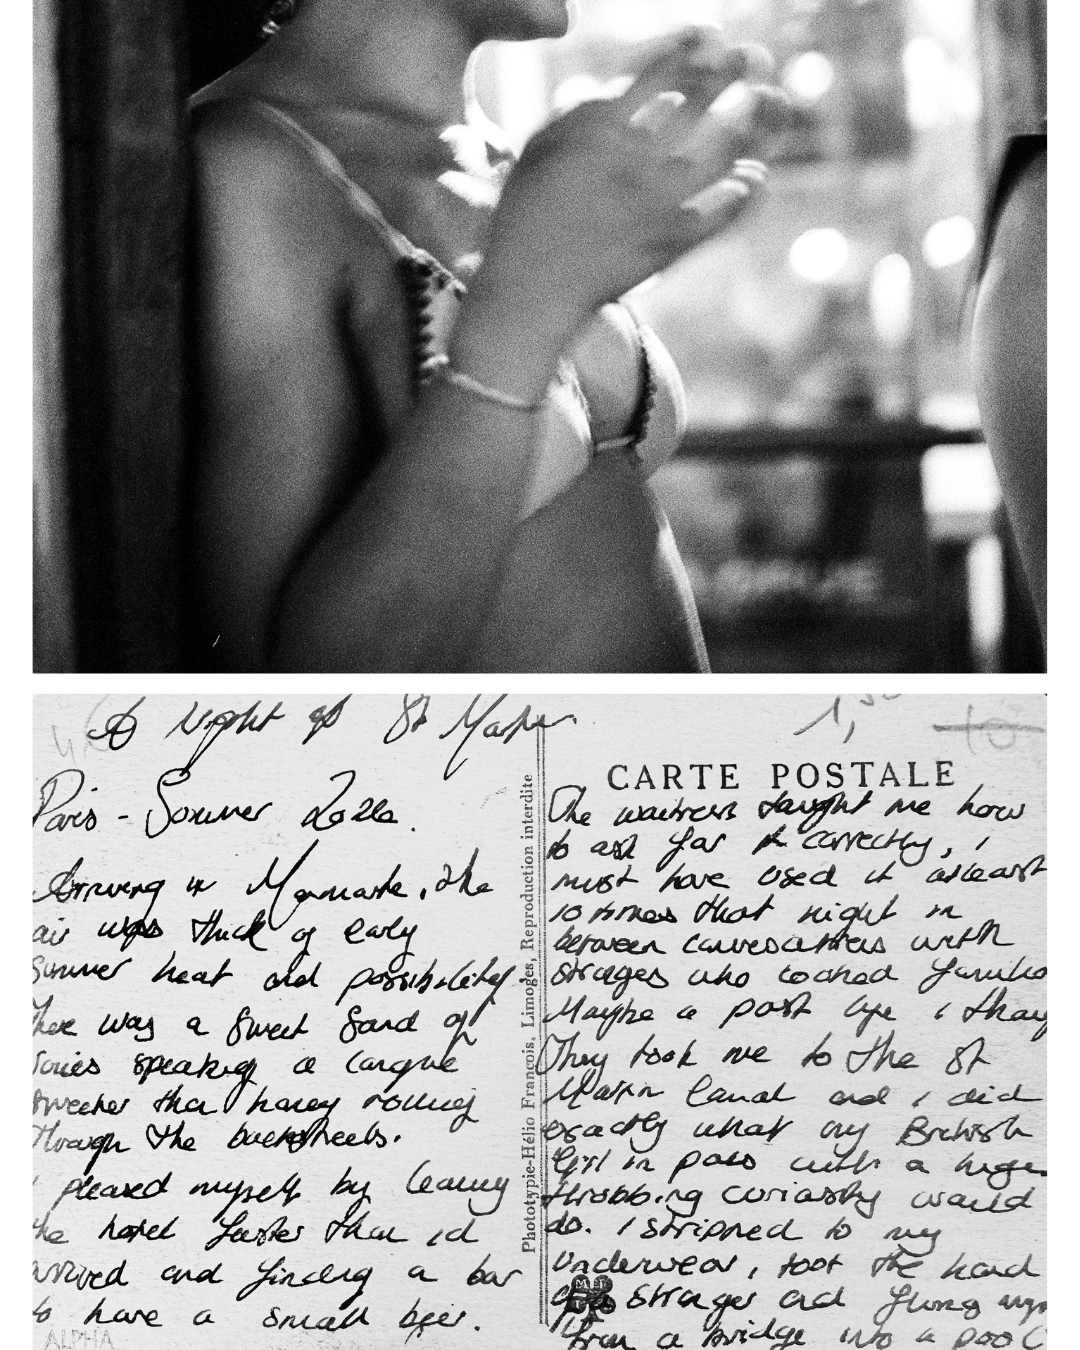 A Night at St Martin.
Paris - Summer 2022.
Arriving in Monmarte, the
air was thick of early
Summer heat and possibility.
There was a sweet sound of
voices speaking a langue
sweeter than honey rolling
through the backstreets.
I pleased myself by leaving
the hotel faster than id
arrived and finding a bar
to have a small beer.
ALPHA
Phototypie-Hélio François, Limoges, Reproduction interdite
CARTE POSTALE
The waitress taught me how
to ask for it correctly, i
must have used it atleast
10 times that night in
between conversations with
strangers who looked
Maybe a past life i
They took me to the St
Martin Canal and i did
exactly what any British
Girl in paris with a huge
throbbing curiosity would
do. I stripped to my
underwear, took the hand
stranger and flung
from a bridge into a pool